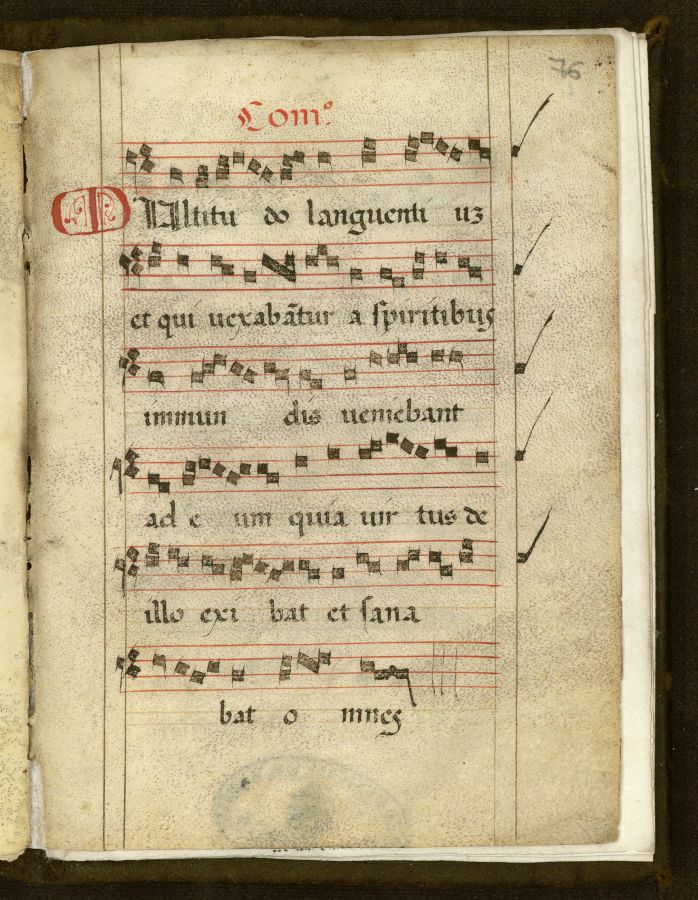 76
Com.º
MUltitu do languenti uz
et qui uexabãtur a spiritibus
immun dis ueniebant
ad e um quia uir tus de
illo exi bat et sana
bat o mnes